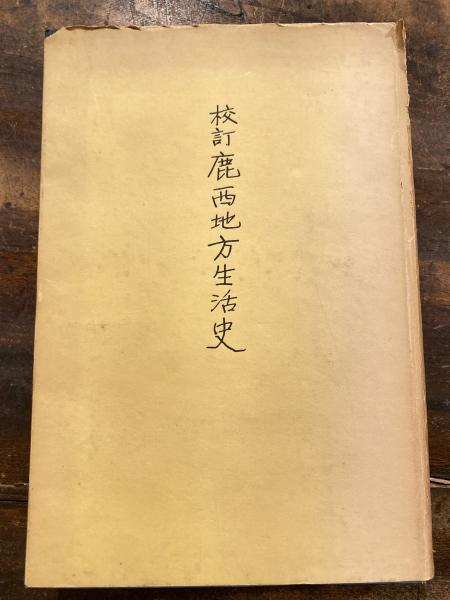 校訂鹿西地方生活史